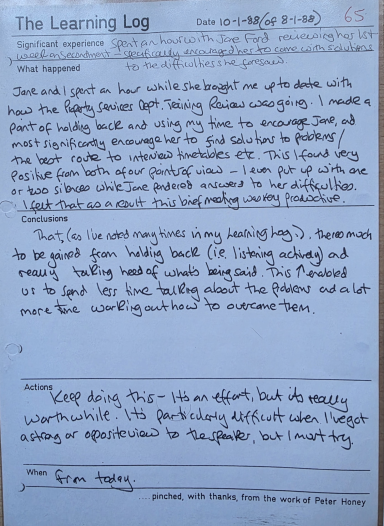 The Learning Log Date 10-1-88 (of 8-1-88) 65
Significant experience Spent an hour with Jane Ford reviewing her 1st
week on secondment - specifically encouraged her to come with solutions
What happened to the difficulties she foresaw.
Jane and I spent an hour while she brought me up to date with
how the Property Services Dept. Training Review was going. I made a
point of holding back and using my time to encourage Jane, and
most significantly encourage her to find solutions to problems/
the best route to interview timetables etc. This I found very
positive from both of our points of view - I even put up with one
or two silences while Jane pondered answers to her difficulties.
I felt that as a result this brief meeting was very productive.
Conclusions
That, (as I've noted many times in my Learning Log), there's much
to be gained from holding back (i.e. listening actively) and
really taking heed of what's being said. This enabled
us to spend less time talking about the problems and a lot
more time working out how to overcome them.
Actions
Keep doing this - It's an effort, but it's really
worthwhile. It's particularly difficult when I've got
a strong or opposite view to the speaker, but I must try.
When from today.
....pinched, with thanks, from the work of Peter Honey